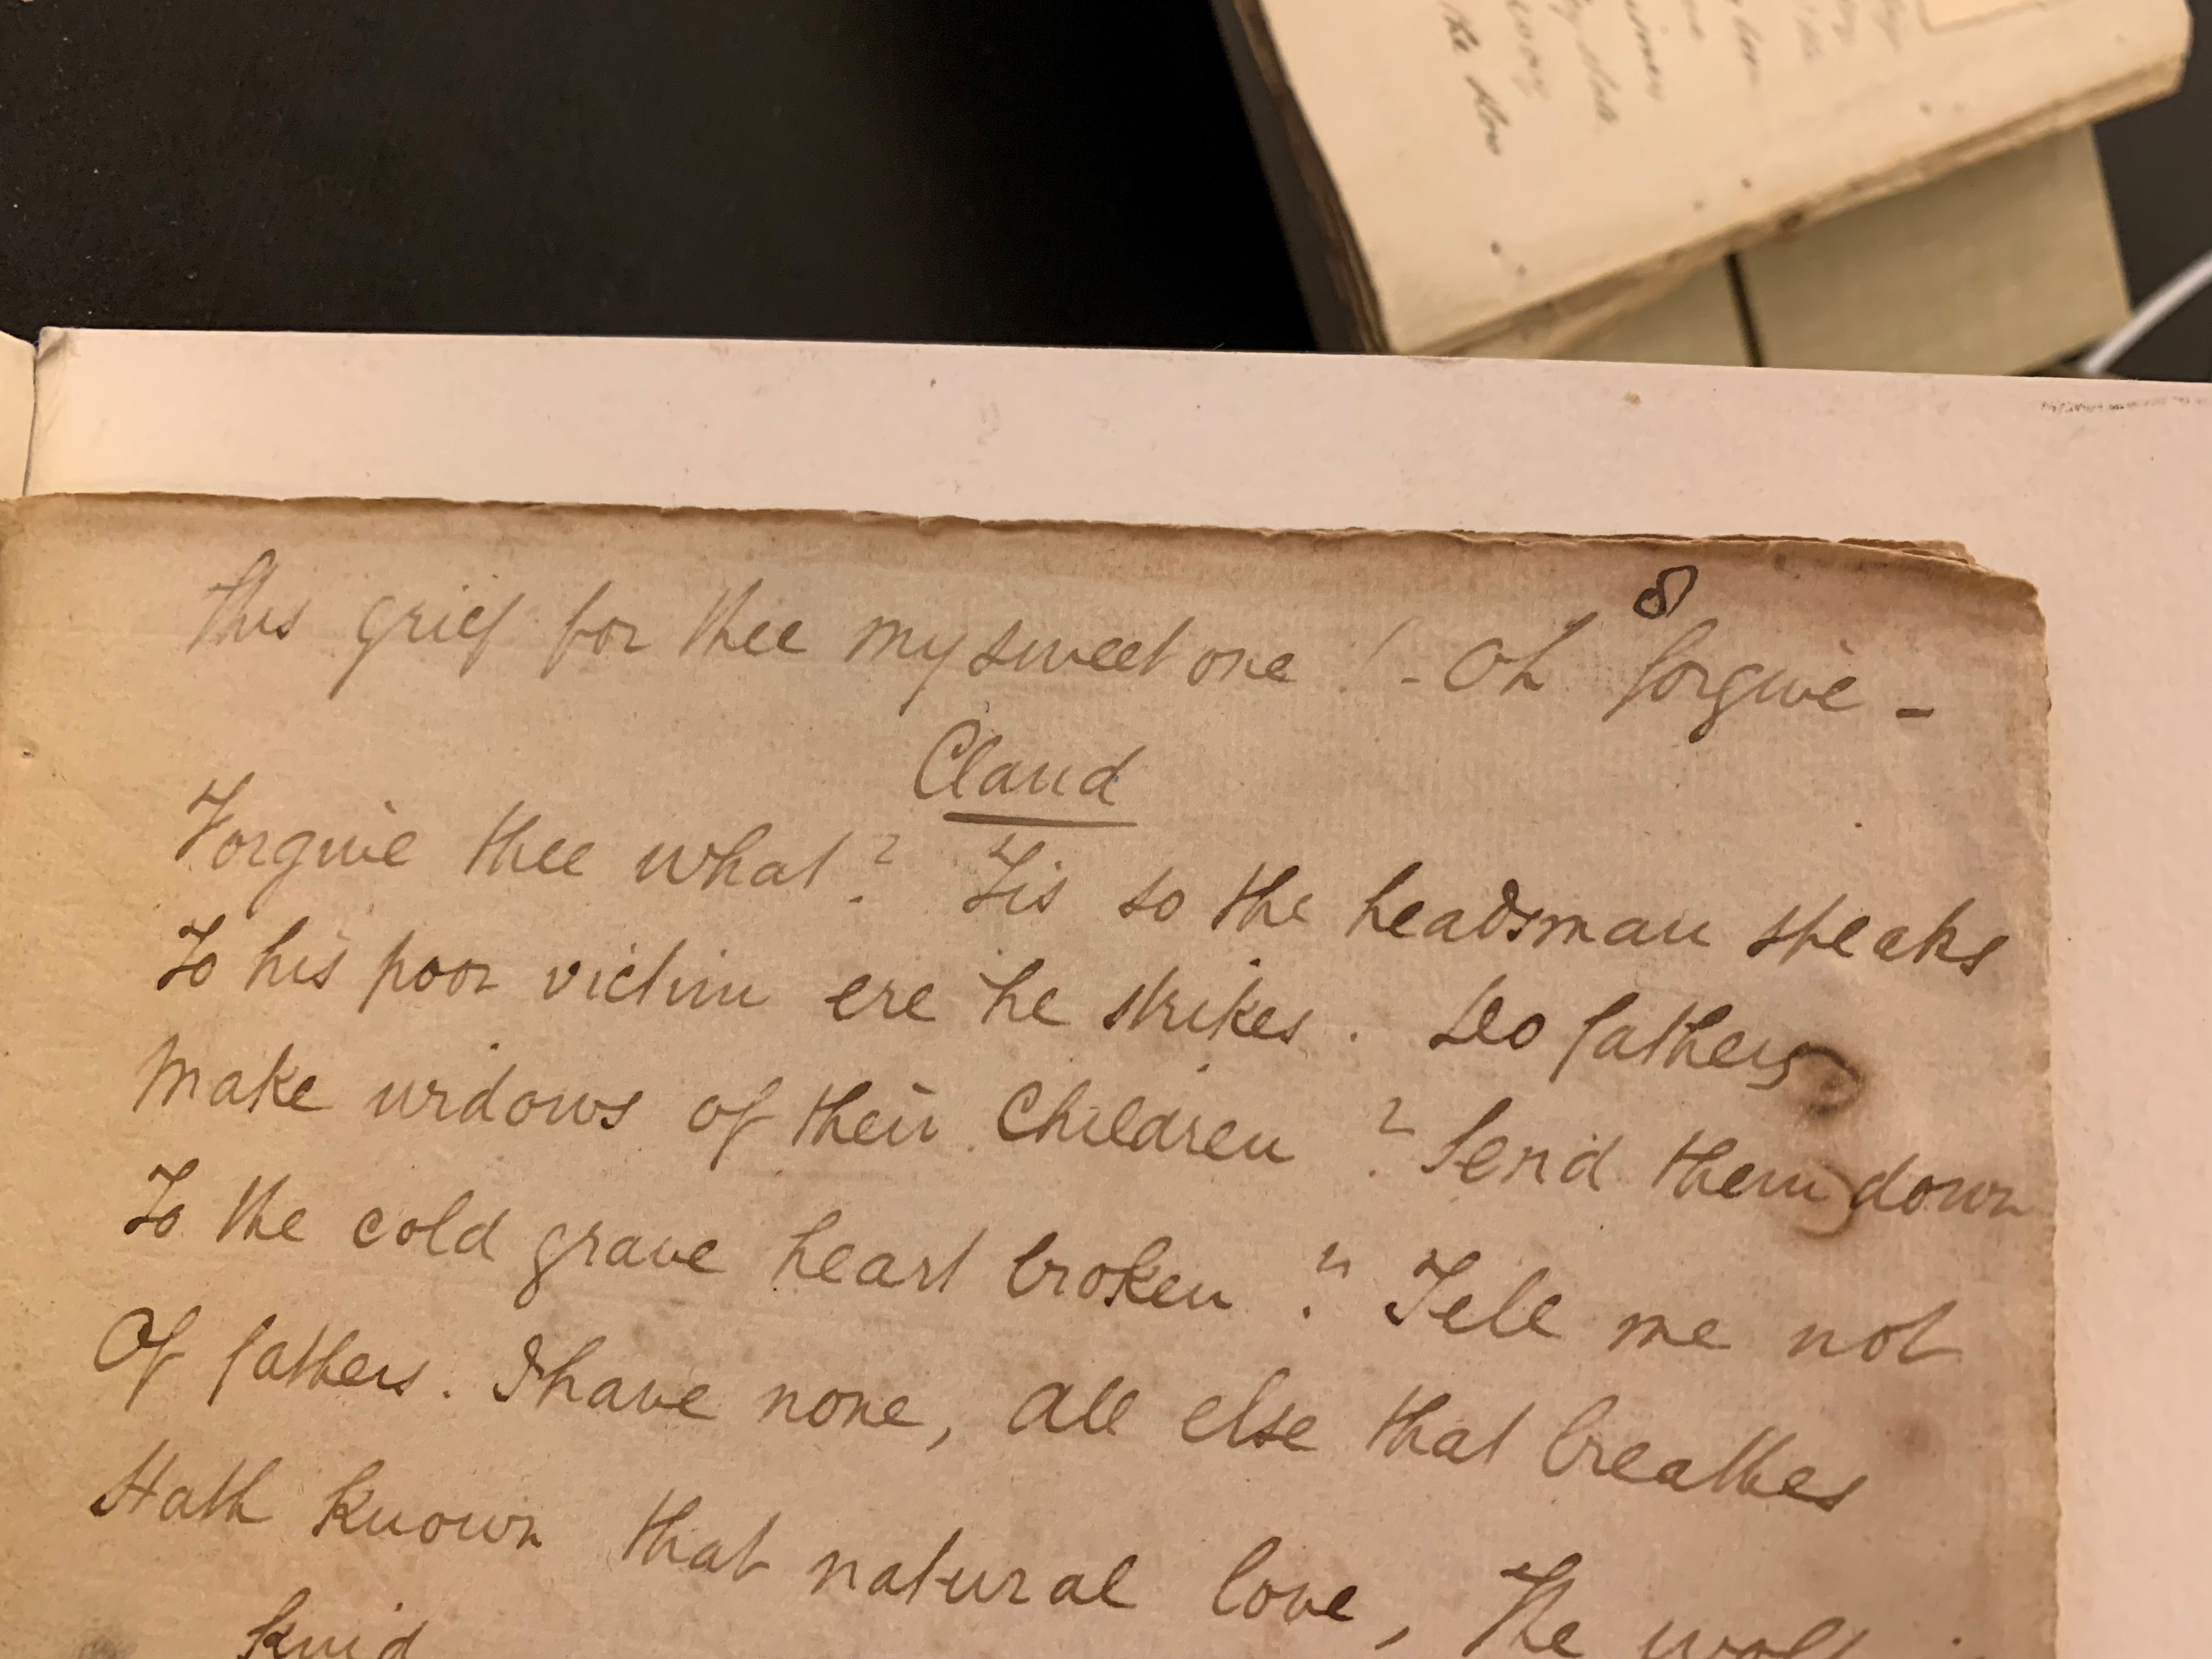 8
this grief for thee my sweet one ! - Oh forgive -
Claud
Forgive thee what ? Tis so the headsman speaks
To his poor victim ere he strikes . Do fathers
Make widows of their Children ? Send them down
To the cold grave heart broken ? Tell me not
Of fathers . I have none , all else that breathes
Hath known that natural love , The wolf is
kind